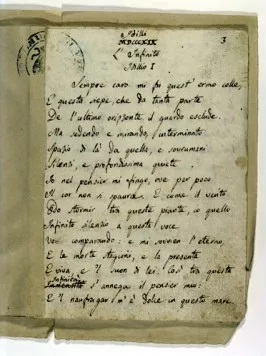 3
Idillio
MDCCCXIX
L'Infinito
Idillio I
Sempre caro mi fu quest'ermo colle,
E questa siepe, che da tanta parte
De l'ultimo orizzonte il guardo esclude.
Ma sedendo e mirando, l'interminato
Spazio di là da quella, e sovrumani
Silenzi, e profondissima quiete
Io nel pensier mi fingo, ove per poco
Il cor non si spaura. E come il vento
Odo stormir tra queste piante, io quello
Infinito silenzio a questa voce
Vo comparando: e mi sovvien l'eterno,
E le morte stagioni, e la presente
E viva, e 'l suon di lei. Così tra questa
Infinità
Immensità s'annega il pensier mio:
E 'l naufragar m'è dolce in questo mare.